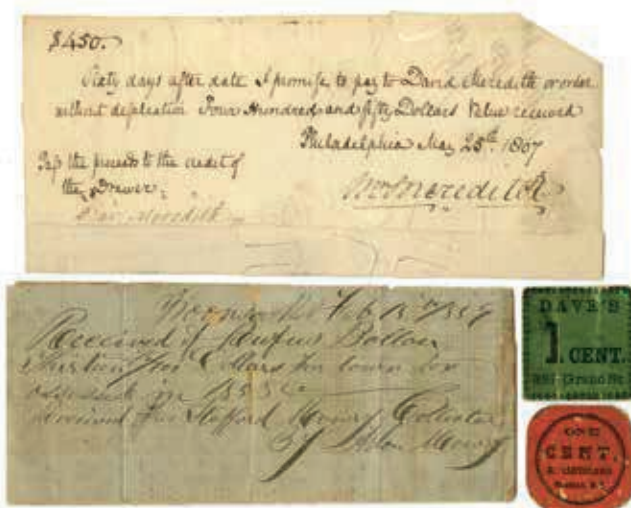 $450.
Sixty days after date I promise to pay to David Meredith or order
without defalcation Four Hundred and fifty Dollars Value received
Philadelphia May 25th. 1807
Pay the proceeds to the credit of
the Drawer.
Dav. Meredith
Wm Meredith
Woonsocket Feb 15th 1859
Received of Rufus Ballou
Dollars for town
in 185
Received for Stafford Mowry Collector
By Mowry
DAVE'S
1 CENT.
Grand St.
ONE
CENT.